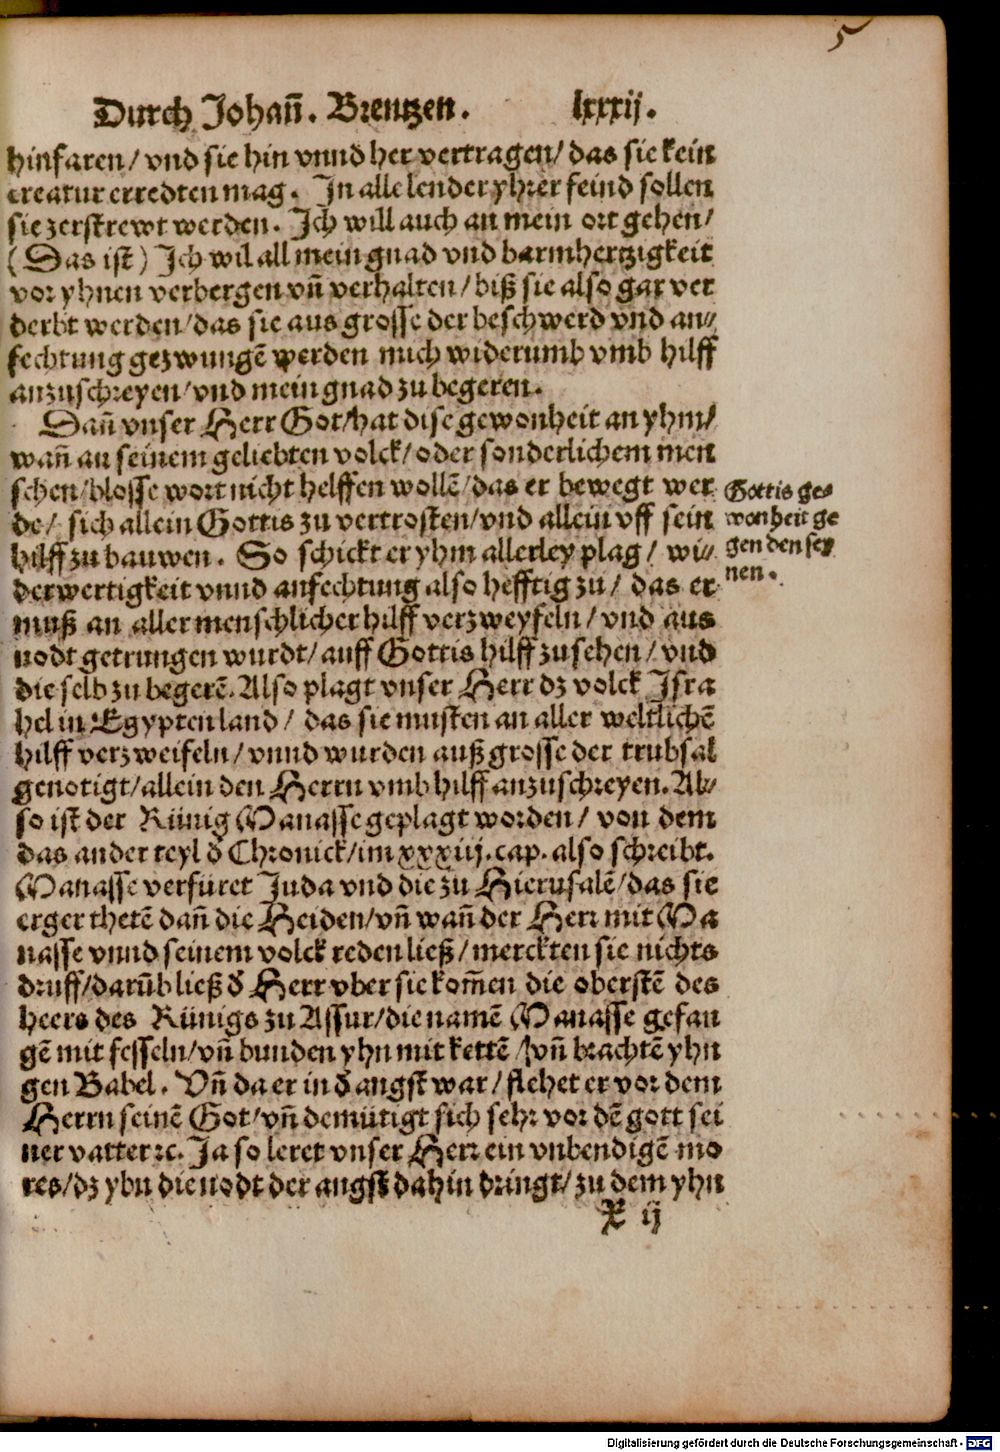 5
Durch Johañ. Brentzen. lxxxij.
hinfaren/ vnd sie hin vnnd her vertragen/ das sie kein
creatur erredten mag. In alle lender yhrer feind sollen
sie zerstrewt werden. Ich will auch an mein ort gehen/
(Das ist) Ich wil all mein gnad vnd barmhertzigkeit
vor yhnen verbergen vñ verhalten/ biß sie also gar ver
derbt werden/ das sie aus grosse der beschwerd vnd an⸗
fechtung gezwungē werden mich widerumb vmb hilff
anzuschreyen/ vnd mein gnad zu begeren.
Dañ vnser Herr Got/ hat dise gewonheit an yhm/
wañ an seinem geliebten volck/ oder sonderlichem men
schen/ blosse wort nicht helffen wollē/ das er bewegt wer
de/ sich allein Gottis zu vertrosten/ vnd allein vff sein
hilff zu bauwen. So schickt er yhm allerley plag/ wi⸗
derwertigkeit vnnd anfechtung also hefftig zu/ das er
muß an aller menschlicher hilff verzweyfeln/ vnd aus
nodt getrungen wurdt/ auff Gottis hilff zu sehen/ vnd
die selb zu begerē. Also plagt vnser Herr dz volck Isra
hel in Egypten land/ das sie musten an aller weltlichē
hilff verzweifeln/ vnnd wurden auß grosse der trubsal
genotigt/ allein den Herrn vmb hilff anzuschreyen. Al⸗
so ist der Künig Manasse geplagt worden/ von dem
das ander teyl d̄ Chronick/ im xxxiij. cap. also schreibt.
Manasse verfüret Juda vnd die zu Hierusalē/ das sie
erger thetē dañ die Heiden/ vñ wañ der Herr mit Ma
nasse vnnd seinem volck reden ließ/ merckten sie nichts
druff/ darūb ließ d̄ Herr vber sie kom̄en die oberstē des
heers des Künigs zu Assur/ die namē Manasse gefan
gē mit fesseln/ vñ bunden yhn mit kettē/ vñ brachtē yhn
gen Babel. Vñ da er in d̄ angst war/ flehet er vor dem
Herrn seinē Got/ vñ demütigt sich sehr vor dē gott sei
ner vatter ꝛc. Ja so leret vnser Herr ein vnbendigē mo
res/ dz yhn die nodt der angst dahin dringt/ zu dem yhn
X ij
Gottis ge⸗
wonheit ge
gen den sey
nen.
Digitalisierung gefördert durch die Deutsche Forschungsgemeinschaft - DFG